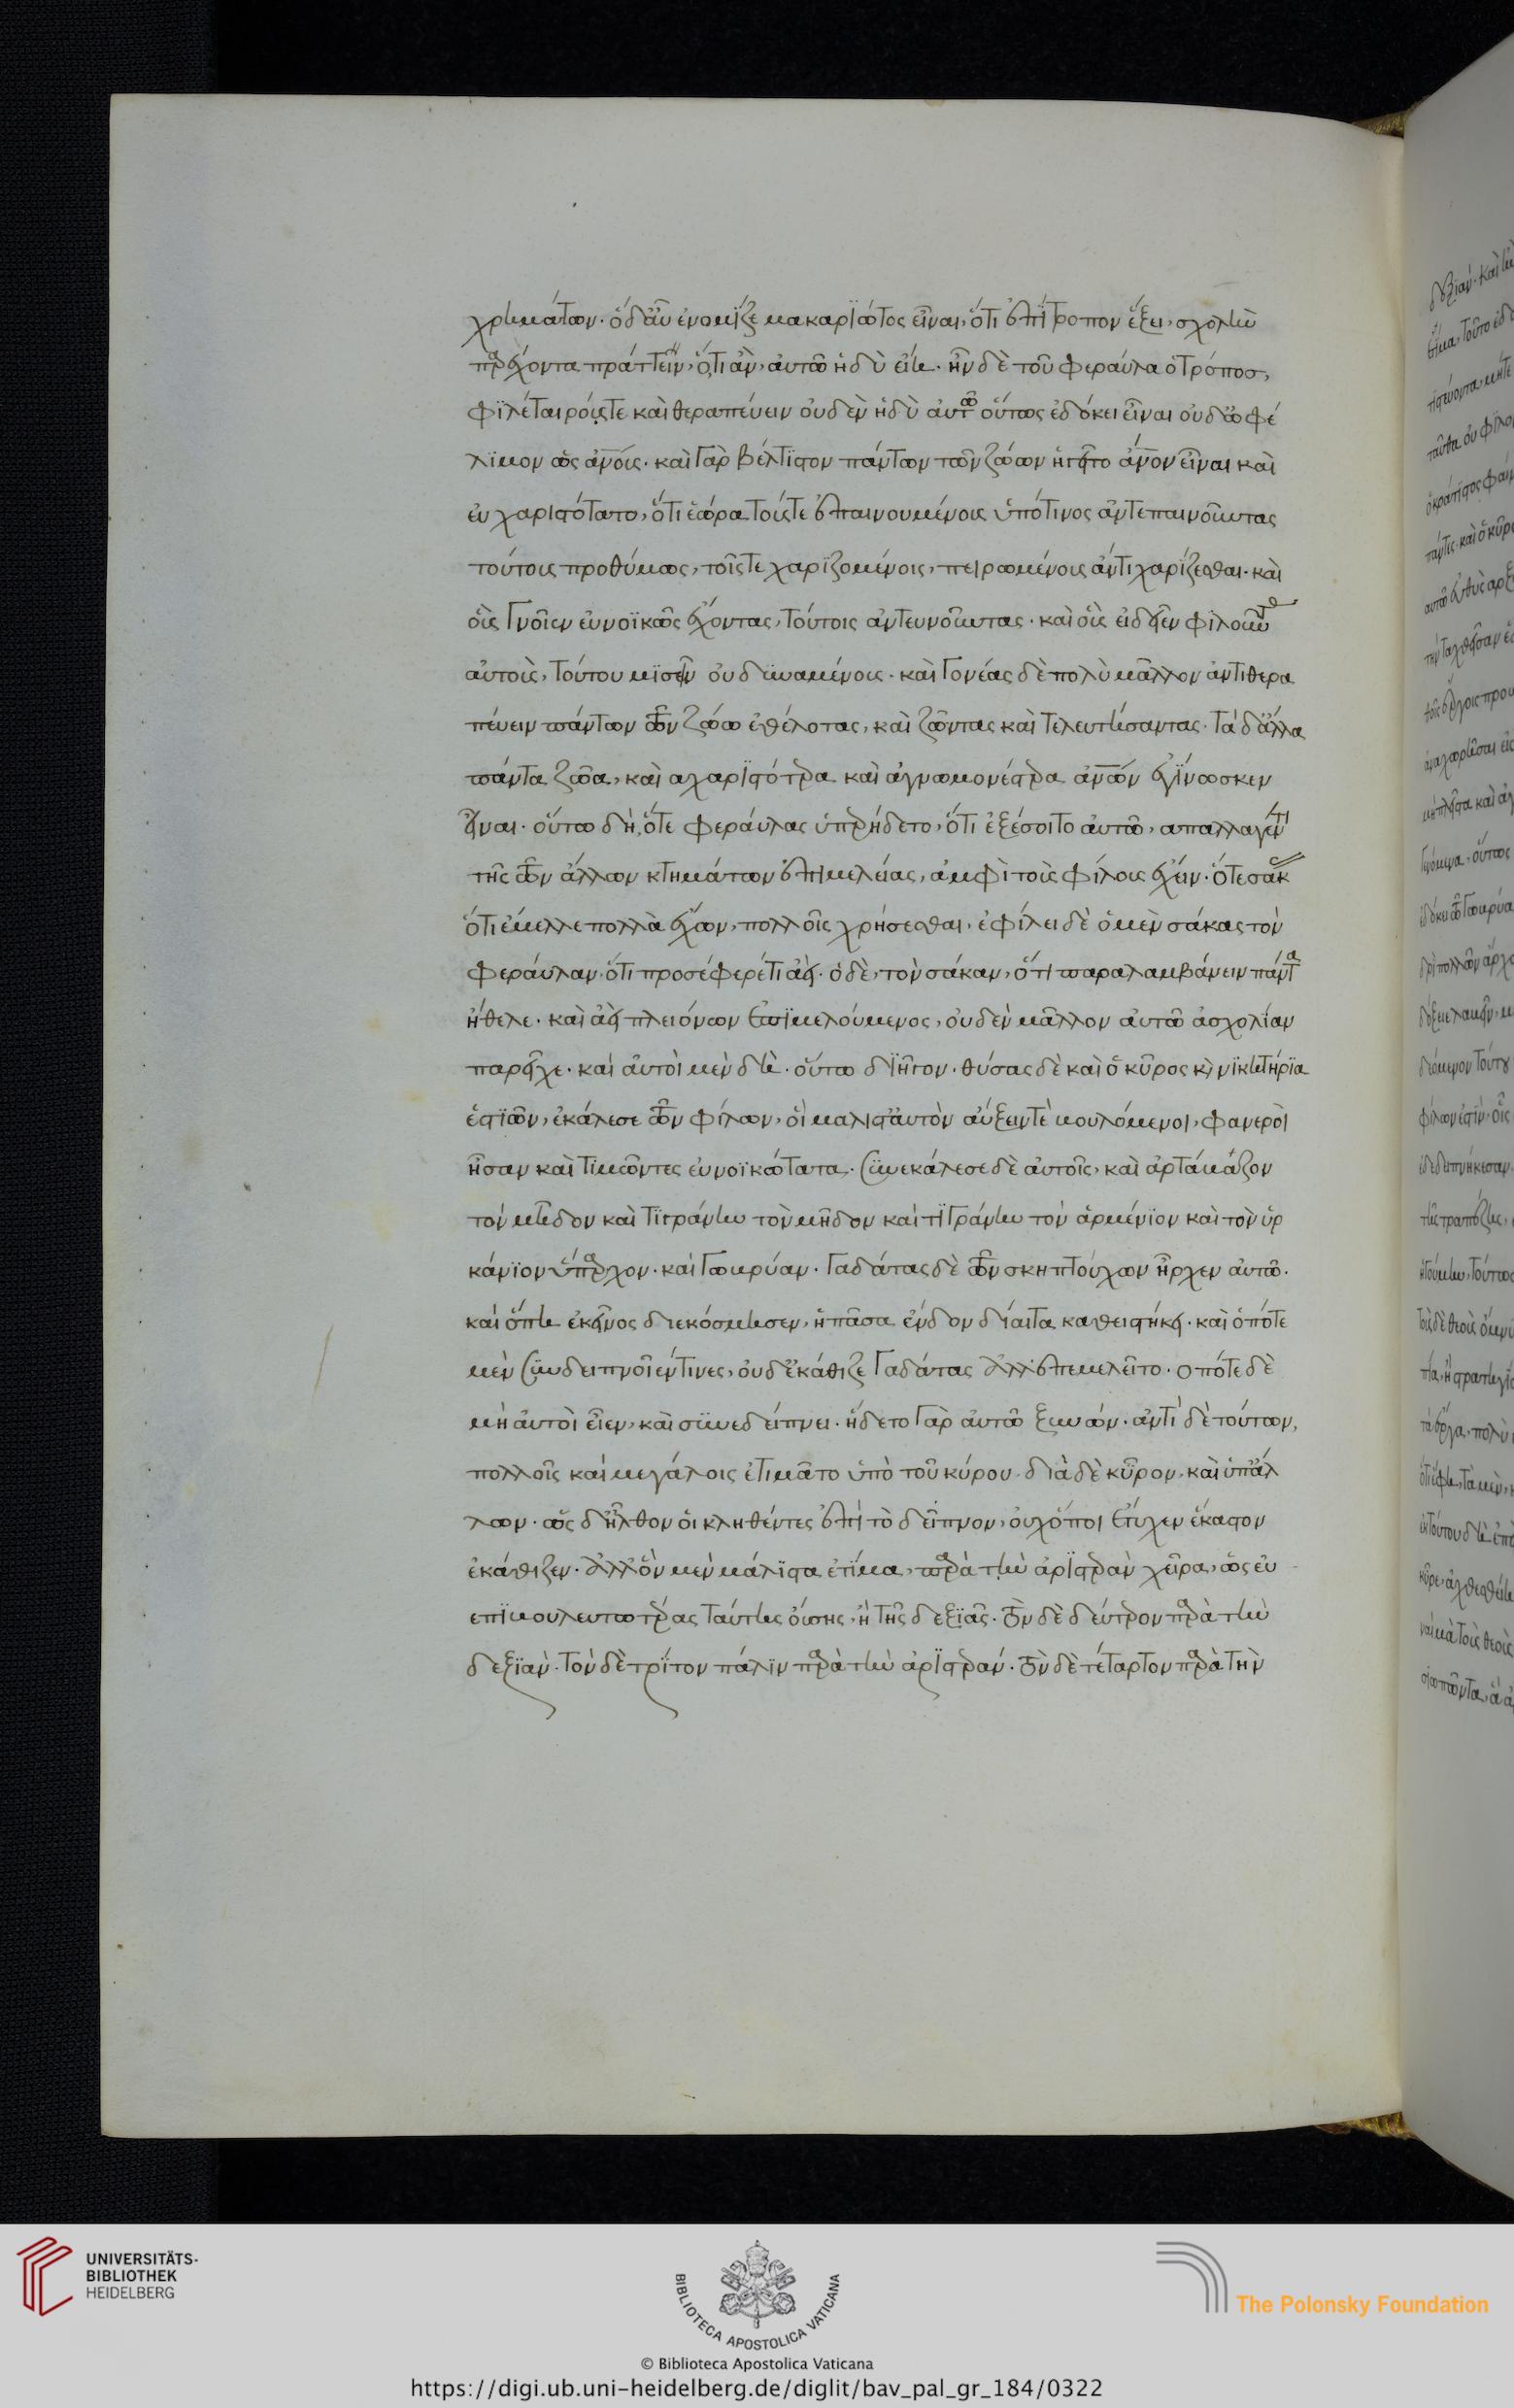 χρημάτων· ὁ δ' αὖ ἐνόμιζε μακαριώτατος εἶναι, ὅτι ἐπίτροπον ἕξει, σχολὴν
παρέχοντα πράττειν, ὅτι ἂν, αὐτῶ ἡδὺ εἴη. ἦν δὲ τοῦ φεραύλα ὁ τρόποσ,
φιλέταιρός τε καὶ θεραπεύειν οὐδὲν ἡδὺ αὐτῶ οὕτως ἐδόκει εἶναι οὐδ' ὠφέ
λιμον ὡς ἀν̅οις. καὶ γὰρ βέλτιστον πάντων τῶν ζώων ἡγεῖτο ἄν̅ον εἶναι καὶ
εὐχαριστότατο, ὅτι ἑώρα τούς τε ἐπαινουμένοις ὑπό τινος ἀντεπαινοῦντας
τούτοις προθύμως, τοῖς τε χαριζομένοις, πειρωμένοις ἀντιχαρίζεσθαι. καὶ
οὓς γνοῖεν εὐνοϊκῶς ἔχοντας, τούτοις ἀντευνοοῦντας. καὶ οὓς εἰδεῖεν φιλοῦντας
αὐτοὺς, τούτου μισεῖν οὐ δυναμένοις. καὶ γονέας δὲ πολὺ μᾶλλον ἀντιθερα
πεύειν πάντων τῶν ζώω ἐθέλοτας, καὶ ζῶντας καὶ τελευτήσαντας. τὰ δ' ἄλλα
πάντα ζῶα, καὶ αχαριστότερα καὶ ἀγνωμονέστερα ἀν̅ων ἐγίνωσκεν
εἶναι. οὕτω δὴ, ὅτε φεραύλας ὑπερήδετο, ὅτι ἐξέσοιτο αὐτῶ, απαλλαγέντι
τῆς τῶν ἄλλων κτημάτων ἐπιμελείας, ἀμφὶ τοὺς φίλους ἔχειν. ὅτε σάκας
ὅτι ἔμελλε πολλὰ ἔχων, πολλοῖς χρήσεσθαι. ἐφίλει δὲ ὁ μὲν σάκας τὸν
φεραύλαν. ὅτι προσέφερέ τι ἀεί. ὁ δὲ, τὸν σάκαν, ὅτι παραλαμβάνειν πάντα
ἤθελε. καὶ ἀεὶ πλειόνων ἐπιμελούμενος, οὐδὲν μᾶλλον αὐτῶ ἀσχολίαν
παρεῖχε. καὶ αὐτοὶ μὲν δὴ. οὕτω διῆγον. θύσας δὲ καὶ ὁ κῦρος κ̀ νικητήρια
ἑστιῶν, ἐκάλεσε τῶν φίλων, οἳ μάλιστ' αὐτὸν αὔξειν τὲ βουλόμενοι, φανεροὶ
ἦσαν καὶ τιμῶντες εὐνοϊκώτατα. συνεκάλεσε δὲ αὐτοῖς, καὶ ἀρτάβαζον
τὸν μῆδον καὶ τιγράνην τὸν μῆδον καὶ τιγράνην τὸν ἀρμένιον καὶ τὸν ὑρ
κάνιον ὕπαρχον. καὶ γωβρύαν. γαδάτας δὲ τῶν σκηπτούχων ἦρχεν αὐτῶ.
καὶ ὅπη ἐκεῖνος διεκόσμησεν, ἡ πᾶσα ἔνδον δίαιτα καθειστήκει. καὶ ὁπότε
μὲν συνδειπνοῖέν τινες, οὐδ' ἐκάθιζε γαδάτας ἀλλ' ἐπεμελεῖτο. οπότε δὲ
μὴ αὐτοὶ εἶεν, καὶ συνεδείπνει. ἥδετο γὰρ αὐτῶ ξυνών. ἀντὶ δὲ τούτων,
πολλοῖς καὶ μεγάλοις ἐτιμᾶτο ὑπὸ τοῦ κύρου. διὰ δὲ κῦρον, καὶ ὑπ' ἄλ
λων. ὡς δ' ἦλθον οἱ κληθέντες ἐπὶ τὸ δεῖπνον, οὐχ' ὅποι ἔτυχεν ἕκαστον
ἐκάθιζεν. ἀλλ' ὃν μὲν μάλιστα ἐτίμα, παρὰ τὴν ἀριστερὰν χεῖρα, ὡς εὐ
επιβουλευτωτέρας ταύτης οὔσης, ἢ τῆς δεξιᾶς. τὸν δὲ δεύτερον παρὰ τὴν
δεξιὰν. τὸν δὲ τρίτον πάλιν παρὰ τὴν ἀριστεράν. τὸν δὲ τέταρτον παρὰ τὴν
UNIVERSITÄTS-
BIBLIOTHEK
HEIDELBERG
BIBLIOTECA APOSTOLICA VATICANA
© Biblioteca Apostolica Vaticana
The Polonsky Foundation
https://digi.ub.uni-heidelberg.de/diglit/bav_pal_gr_184/0322